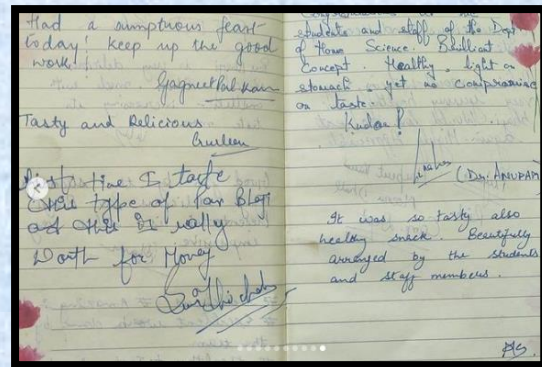 Had a sumptuous feast
today! Keep up the good
work!
Tasty and Delicious
First time I taste
this type of Pav Bhaji
and this is really
Worth for Money
students and staff of the Dept
of Home Science. Brilliant
Concept. Healthy, light on
stomach, yet no compromise
on taste.
Kudos!
(Dr. ANUPAM)
It was so tasty also
healthy snack. Beautifully
arranged by the students
and staff members.